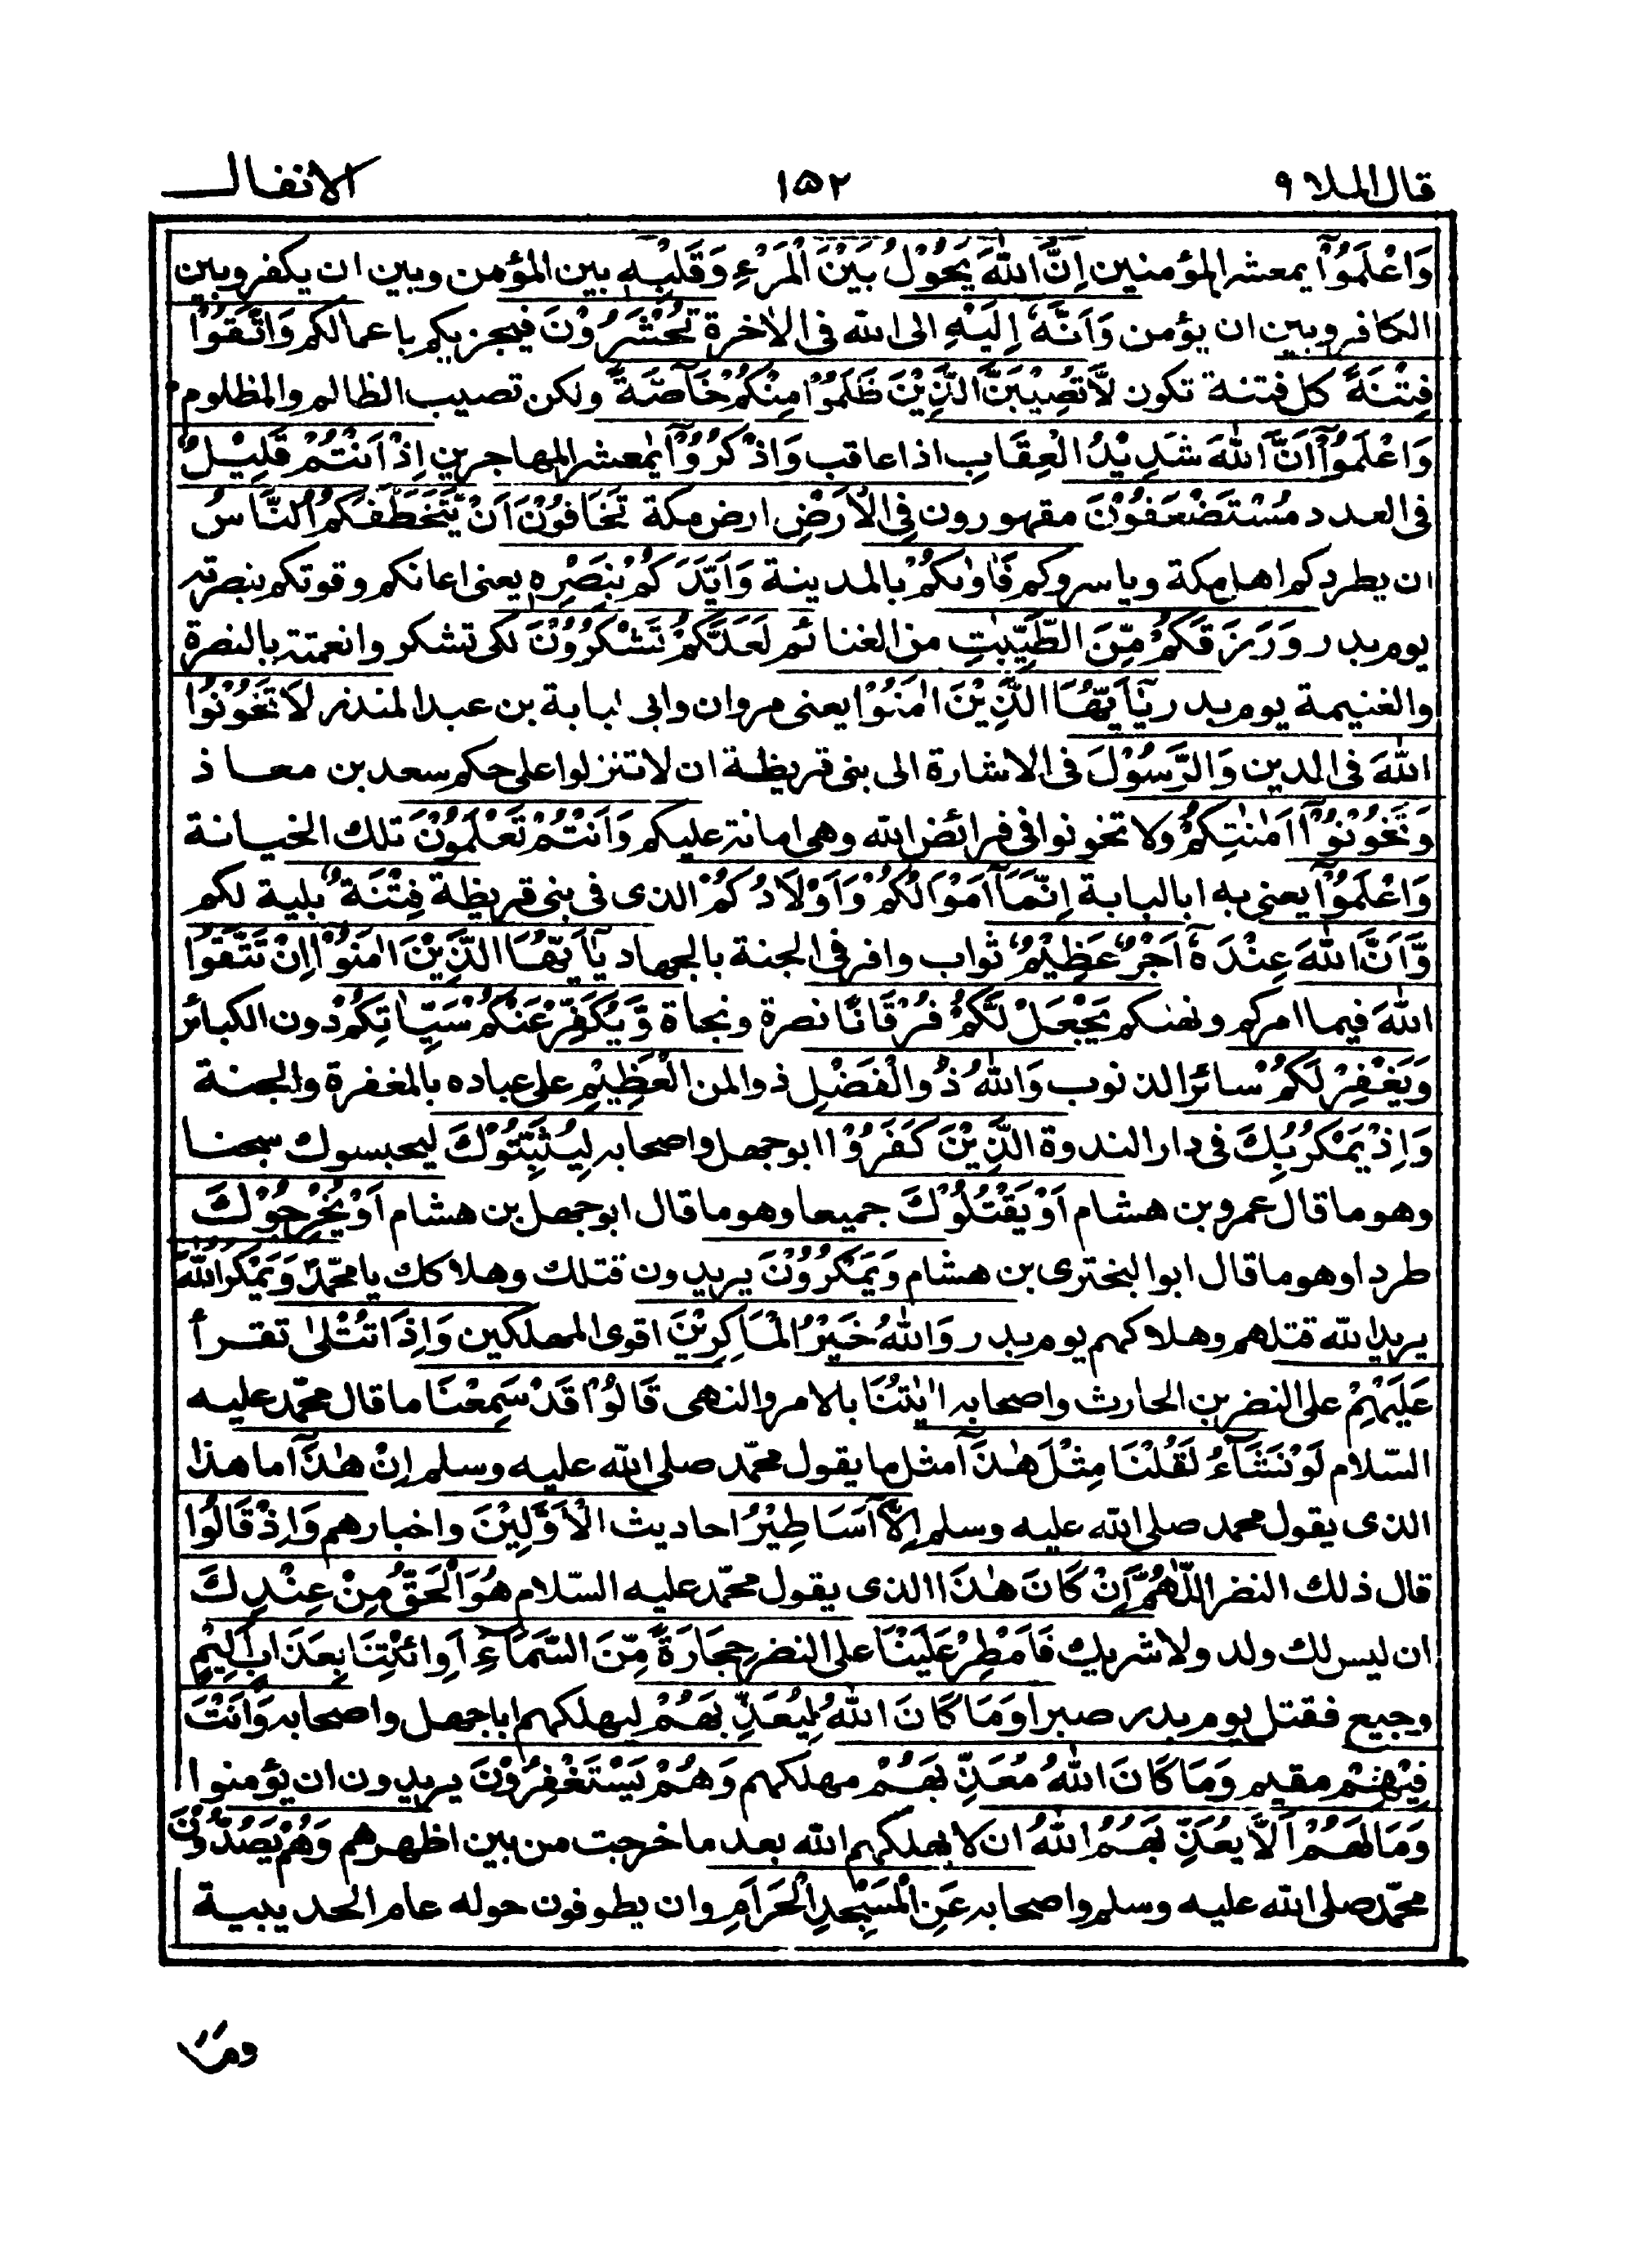 قال الملا ٩ ١٥٢ الانفال
وَاعْلَمُوْٓا يمعشر المؤمنين اِنَّ اللّٰهَ يَحُوْلُ بَيْنَ الْمَرْءِ وَقَلْبِهٖ بين المؤمن وبين ان يكفر وبين
الكافر وبين ان يؤمن وَاَنَّهٗٓ اِلَيْهِ الى الله فى الاخرة تُحْشَرُوْنَ فيجزيكم باعمالكم وَاتَّقُوْا
فِتْنَةً كل فتنة تكون لَّا تُصِيْبَنَّ الَّذِيْنَ ظَلَمُوْا مِنْكُمْ خَآصَّةً ولكن تصيب الظالم والمظلوم
وَاعْلَمُوْٓا اَنَّ اللّٰهَ شَدِيْدُ الْعِقَابِ اذا عاقب وَاذْكُرُوْٓا يٰمعشر المهاجرين اِذْ اَنْتُمْ قَلِيْلٌ
فى العدد مُسْتَضْعَفُوْنَ مقهورون فِى الْاَرْضِ ارض مكة تَخَافُوْنَ اَنْ يَّتَخَطَّفَكُمُ النَّاسُ
ان يطردكم اهل مكة وياسروكم فَاٰوٰىكُمْ بالمدينة وَاَيَّدَكُمْ بِنَصْرِهٖ يعنى اعانكم وقوتكم بنصرته
يوم بدر وَرَزَقَكُمْ مِّنَ الطَّيِّبٰتِ من الغنائم لَعَلَّكُمْ تَشْكُرُوْنَ لكى تشكروا نعمته بالنصرة
والغنيمة يوم بدر يٰٓاَيُّهَا الَّذِيْنَ اٰمَنُوْا يعنى مروان وابى لبابة بن عبد المنذر لَا تَخُوْنُوا
اللّٰهَ فى الدين وَالرَّسُوْلَ فى الاشارة الى بنى قريظة ان لا تنزلوا على حكم سعد بن معاذ
وَتَخُوْنُوْٓا اَمٰنٰتِكُمْ ولا تخونوا فى فرائض الله وهى امانة عليكم وَاَنْتُمْ تَعْلَمُوْنَ تلك الخيانة
وَاعْلَمُوْٓا يعنى به ابالبابة اِنَّمَآ اَمْوَالُكُمْ وَاَوْلَادُكُمْ الذى فى بنى قريظة فِتْنَةٌ بلية لكم
وَّاَنَّ اللّٰهَ عِنْدَهٗٓ اَجْرٌ عَظِيْمٌ ثواب وافر فى الجنة بالجهاد يٰٓاَيُّهَا الَّذِيْنَ اٰمَنُوْٓا اِنْ تَتَّقُوا
اللّٰهَ فيما امركم ونهىكم يَجْعَلْ لَّكُمْ فُرْقَانًا نصرة ونجاة وَّيُكَفِّرْ عَنْكُمْ سَيِّاٰتِكُمْ دون الكبائر
وَيَغْفِرْ لَكُمْ سائر الذنوب وَاللّٰهُ ذُوالْفَضْلِ ذوالمن الْعَظِيْمِ على عباده بالمغفرة والجنة
وَاِذْ يَمْكُرُ بِكَ فى دار الندوة الَّذِيْنَ كَفَرُوْا ابوجهل واصحابه لِيُثْبِتُوْكَ ليحبسوك سجنا
وهو ما قال عمرو بن هشام اَوْ يَقْتُلُوْكَ جميعا وهو ما قال ابوجهل بن هشام اَوْ يُخْرِجُوْكَ
طردا وهو ما قال ابوالبخترى بن هشام وَيَمْكُرُوْنَ يريدون قتلك وهلاكك يا محمّد وَيَمْكُرُ اللّٰهُ
يريد الله قتلهم وهلاكهم يوم بدر وَاللّٰهُ خَيْرُ الْمَاكِرِيْنَ اقوى المهلكين وَاِذَا تُتْلٰى تقرأ
عَلَيْهِمْ على النضر بن الحارث واصحابه اٰيٰتُنَا بالامر والنهى قَالُوْا قَدْ سَمِعْنَا ما قال محمّد عليه
السّلام لَوْ نَشَآءُ لَقُلْنَا مِثْلَ هٰذَآ مثل ما يقول محمّد صلى الله عليه وسلم اِنْ هٰذَآ ما هذا
الذى يقول محمد صلى الله عليه وسلم اِلَّآ اَسَاطِيْرُ احاديث الْاَوَّلِيْنَ واخبارهم وَاِذْ قَالُوا
قال ذلك النضر اللّٰهُمَّ اِنْ كَانَ هٰذَا الذى يقول محمّد عليه السّلام هُوَ الْحَقَّ مِنْ عِنْدِكَ
ان ليس لك ولد ولا شريك فَاَمْطِرْ عَلَيْنَا على النضر حِجَارَةً مِّنَ السَّمَآءِ اَوِ ائْتِنَا بِعَذَابٍ اَلِيْمٍ
وجيع فقتل يوم بدر صبرا وَمَا كَانَ اللّٰهُ لِيُعَذِّبَهُمْ ليهلكهم اباجهل واصحابه وَاَنْتَ
فِيْهِمْ مقيم وَمَا كَانَ اللّٰهُ مُعَذِّبَهُمْ مهلكهم وَهُمْ يَسْتَغْفِرُوْنَ يريدون ان يؤمنوا
وَمَا لَهُمْ اَلَّا يُعَذِّبَهُمُ اللّٰهُ ان لا يهلكهم الله بعد ما خرجت من بين اظهرهم وَهُمْ يَصُدُّوْنَ
محمّد صلى الله عليه وسلم واصحابه عَنِ الْمَسْجِدِ الْحَرَامِ وان يطوفون حوله عام الحديبية
وَمَا